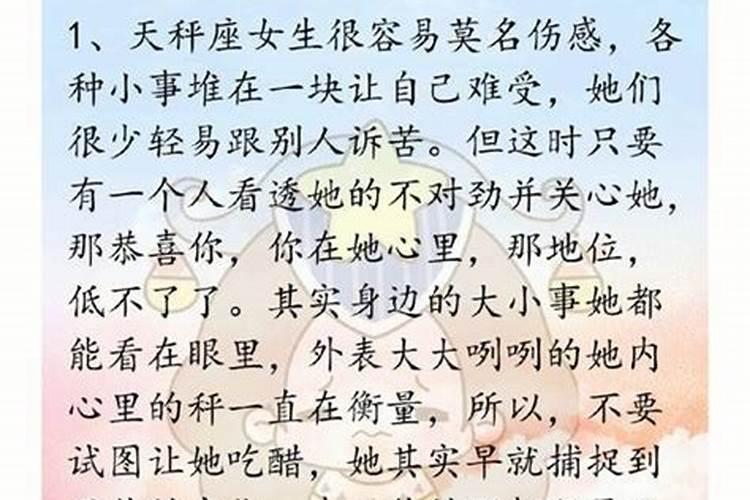 1、天秤座女生很容易莫名伤感，各
种小事堆在一块让自己难受，她们
很少轻易跟别人诉苦。但这时只要
有一个人看透她的不对劲并关心她，
那恭喜你，你在她心里，那地位，
低不了了。其实身边的大小事她都
能看在眼里，外表大大咧咧的她内
心里的秤一直在衡量，所以，不要
试图让她吃醋，她其实早就捕捉到